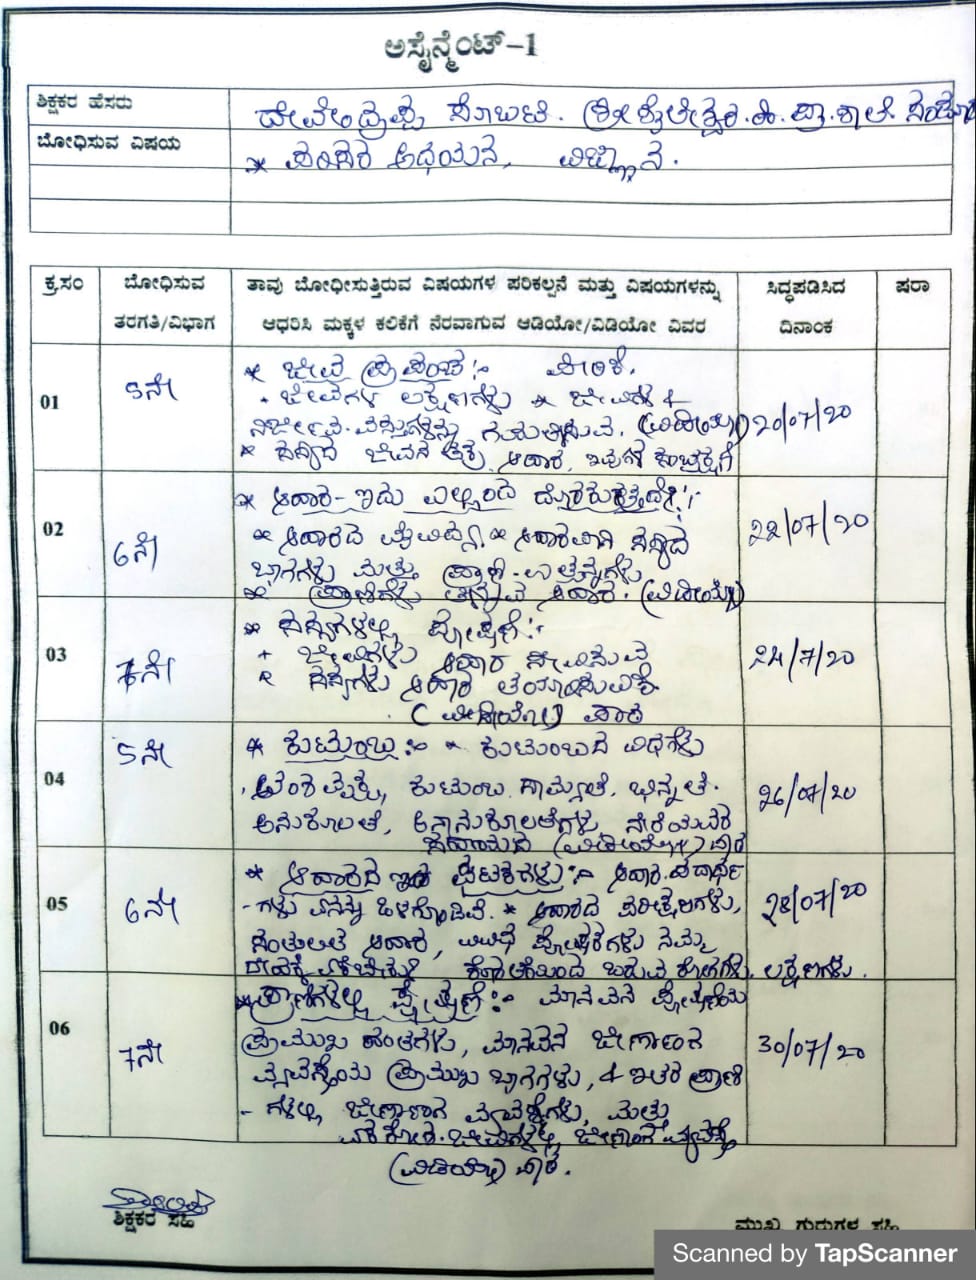 ಅಸೈನ್ಮೆಂಟ್-1
ಶಿಕ್ಷಕರ ಹೆಸರು
ದೇವೇಂದ್ರಪ್ಪ ಶ್ರೀಶೈಲೇಶ್ವರ ಹಿ. ಪ್ರಾ. ಶಾಲೆ
ಬೋಧಿಸುವ ವಿಷಯ
* ಪರಿಸರ ಅಧ್ಯಯನ, ವಿಜ್ಞಾನ.
ಕ್ರ.ಸಂ
ಬೋಧಿಸುವ
ತರಗತಿ/ವಿಭಾಗ
ತಾವು ಬೋಧೀಸುತ್ತಿರುವ ವಿಷಯಗಳ ಪರಿಕಲ್ಪನೆ ಮತ್ತು ವಿಷಯಗಳನ್ನು
ಆಧರಿಸಿ ಮಕ್ಕಳ ಕಲಿಕೆಗೆ ನೆರವಾಗುವ ಆಡಿಯೋ/ವಿಡಿಯೋ ವಿವರ
ಸಿದ್ಧಪಡಿಸಿದ
ದಿನಾಂಕ
ಷರಾ
01
5ನೇ
* ಜೀವ ಪ್ರಪಂಚ:- ಪೀಠಿಕೆ.
• ಜೀವಿಗಳ ಲಕ್ಷಣಗಳು * ಜೀವಿಗಳ &
ನಿರ್ಜೀವ ವಸ್ತುಗಳನ್ನು ಗುರುತಿಸುವ. (ವಿಡಿಯೋ)
* ಸಸ್ಯದ ಜೀವನ ಚಕ್ರ, ಆಹಾರ, ಇವುಗಳ
20/07/20
02
6ನೇ
* ಆಹಾರ- ಇದು ಎಲ್ಲಿಂದ ದೊರಕುತ್ತದೆ?:-
* ಆಹಾರದ ವೈವಿಧ್ಯ * ಆಹಾರವಾಗಿ ಸಸ್ಯದ
ಭಾಗಗಳು ಮತ್ತು ಪ್ರಾಣಿ-ಉತ್ಪನ್ನಗಳು
* ಪ್ರಾಣಿಗಳು ತಿನ್ನುವ ಆಹಾರ. (ವಿಡಿಯೋ)
22/07/20
03
7ನೇ
* ಸಸ್ಯಗಳಲ್ಲಿ ಪೋಷಣೆ:-
* ಜೀವಿಗಳು ಆಹಾರ ಸೇವಿಸುವ
* ಸಸ್ಯಗಳು ಆಹಾರ ತಯಾರಿಸುವಿಕೆ
(ವಿಡಿಯೋ) ಪಾಠ
24/7/20
04
5ನೇ
* ಕುಟುಂಬ:- * ಕುಟುಂಬದ ವಿಧಗಳು
ವಂಶವೃಕ್ಷ, ಕುಟುಂಬ ಸಾಮ್ಯತೆ, ಭಿನ್ನತೆ.
ಅನುಕೂಲತೆ, ಅನಾನುಕೂಲತೆಗಳು ನೆರೆಯವರ
ಸಹಾಯದ (ವಿಡಿಯೋ) ಪಾಠ
26/07/20
05
6ನೇ
* ಆಹಾರದ ಘಟಕಗಳು:- ಆಹಾರ ಪದಾರ್ಥ
-ಗಳು ಏನನ್ನು ಒಳಗೊಂಡಿವೆ. * ಆಹಾರದ ಪರೀಕ್ಷೆಗಳು,
ಸಂತುಲಿತ ಆಹಾರ, ವಿವಿಧ ಪೋಷಕಗಳು ನಮ್ಮ
ದೇಹಕ್ಕೆ ಏಕೆ ಬೇಕು? ಕೊರತೆಯಿಂದ ಬರುವ ರೋಗಗಳು. ಲಕ್ಷಣಗಳು.
28/07/20
06
7ನೇ
* ಪ್ರಾಣಿಗಳಲ್ಲಿ ಪೋಷಣೆ:- ಮಾನವನ ಪೋಷಣೆಯ
ಪ್ರಮುಖ ಹಂತಗಳು, ಮಾನವನ ಜೀರ್ಣಾಂಗ
ವ್ಯವಸ್ಥೆಯ ಪ್ರಮುಖ ಭಾಗಗಳು, & ಇತರ ಪ್ರಾಣಿ
-ಗಳಲ್ಲಿ ಜೀರ್ಣಾಂಗ ವ್ಯವಸ್ಥೆಗಳು, ಮತ್ತು
ಏಕಕೋಶ ಜೀವಿಗಳಲ್ಲಿ ಜೀರ್ಣಾಂಗ ವ್ಯವಸ್ಥೆ
(ವಿಡಿಯೋ) ಪಾಠ.
30/07/20
ಶಿಕ್ಷಕರ ಸಹಿ
ಮುಖ್ಯ ಗುರುಗಳ ಸಹಿ
Scanned by TapScanner